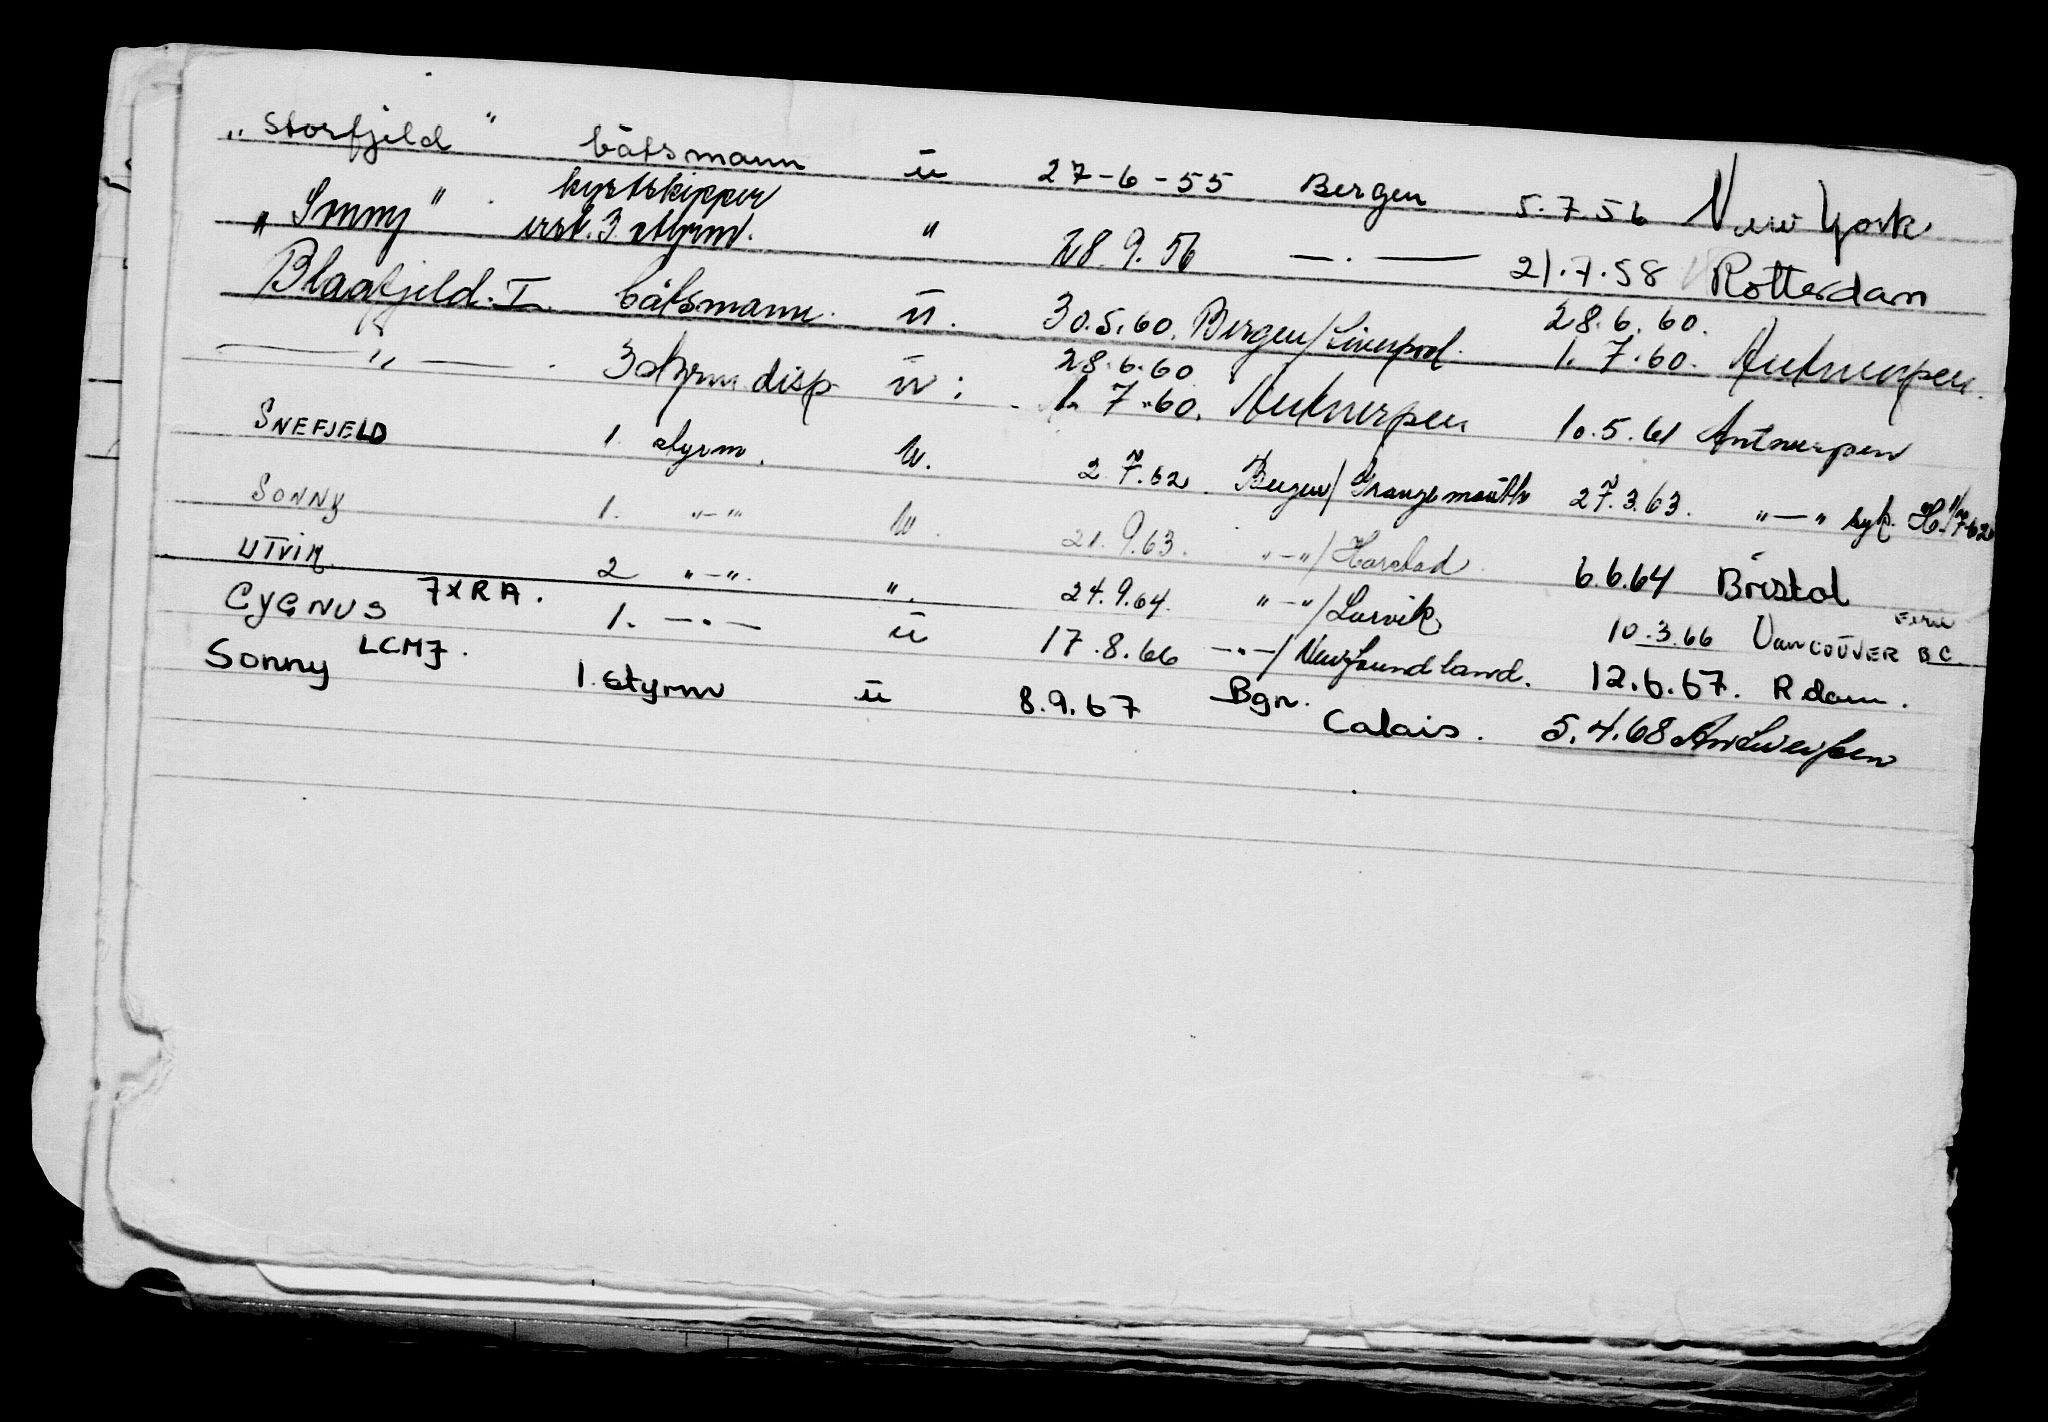 „Storfjeld" båtsmann u 27-6-55 Bergen 5.7.56 New York
kystskipper
„Sonny" erst. 3 styrm. " 28.9.56 — . — 21.7.58 Rotterdam
Blaafjeld. I. båtsmann. u. 30.5.60. Bergen/Liverpool. 28.6.60.
1.7.60. Antwerpen.
— " — . 3 styrm disp u: 28.6.60
1.7.60. Antwerpen 10.5.61 Antwerpen
SNEFJELD 1. styrm. u. 2.7.62. Bergen/Grangemouth 27.3.63. "—" syk.
SONNY 1. "—" u. 21.9.63. "—"/Harstad 6.6.64 Bristol
UTVIK. 2 "—". ". 24.9.64. "—"/Larvik 10.3.66 VANCOUVER B C ferie
CYGNUS 7XRA. 1. —.— u 17.8.66 —.—/Newfoundland. 12.6.67. R dam.
Sonny LCMJ. 1. styrm u 8.9.67 Bgn. Calais. 5.4.68 Antwerpen